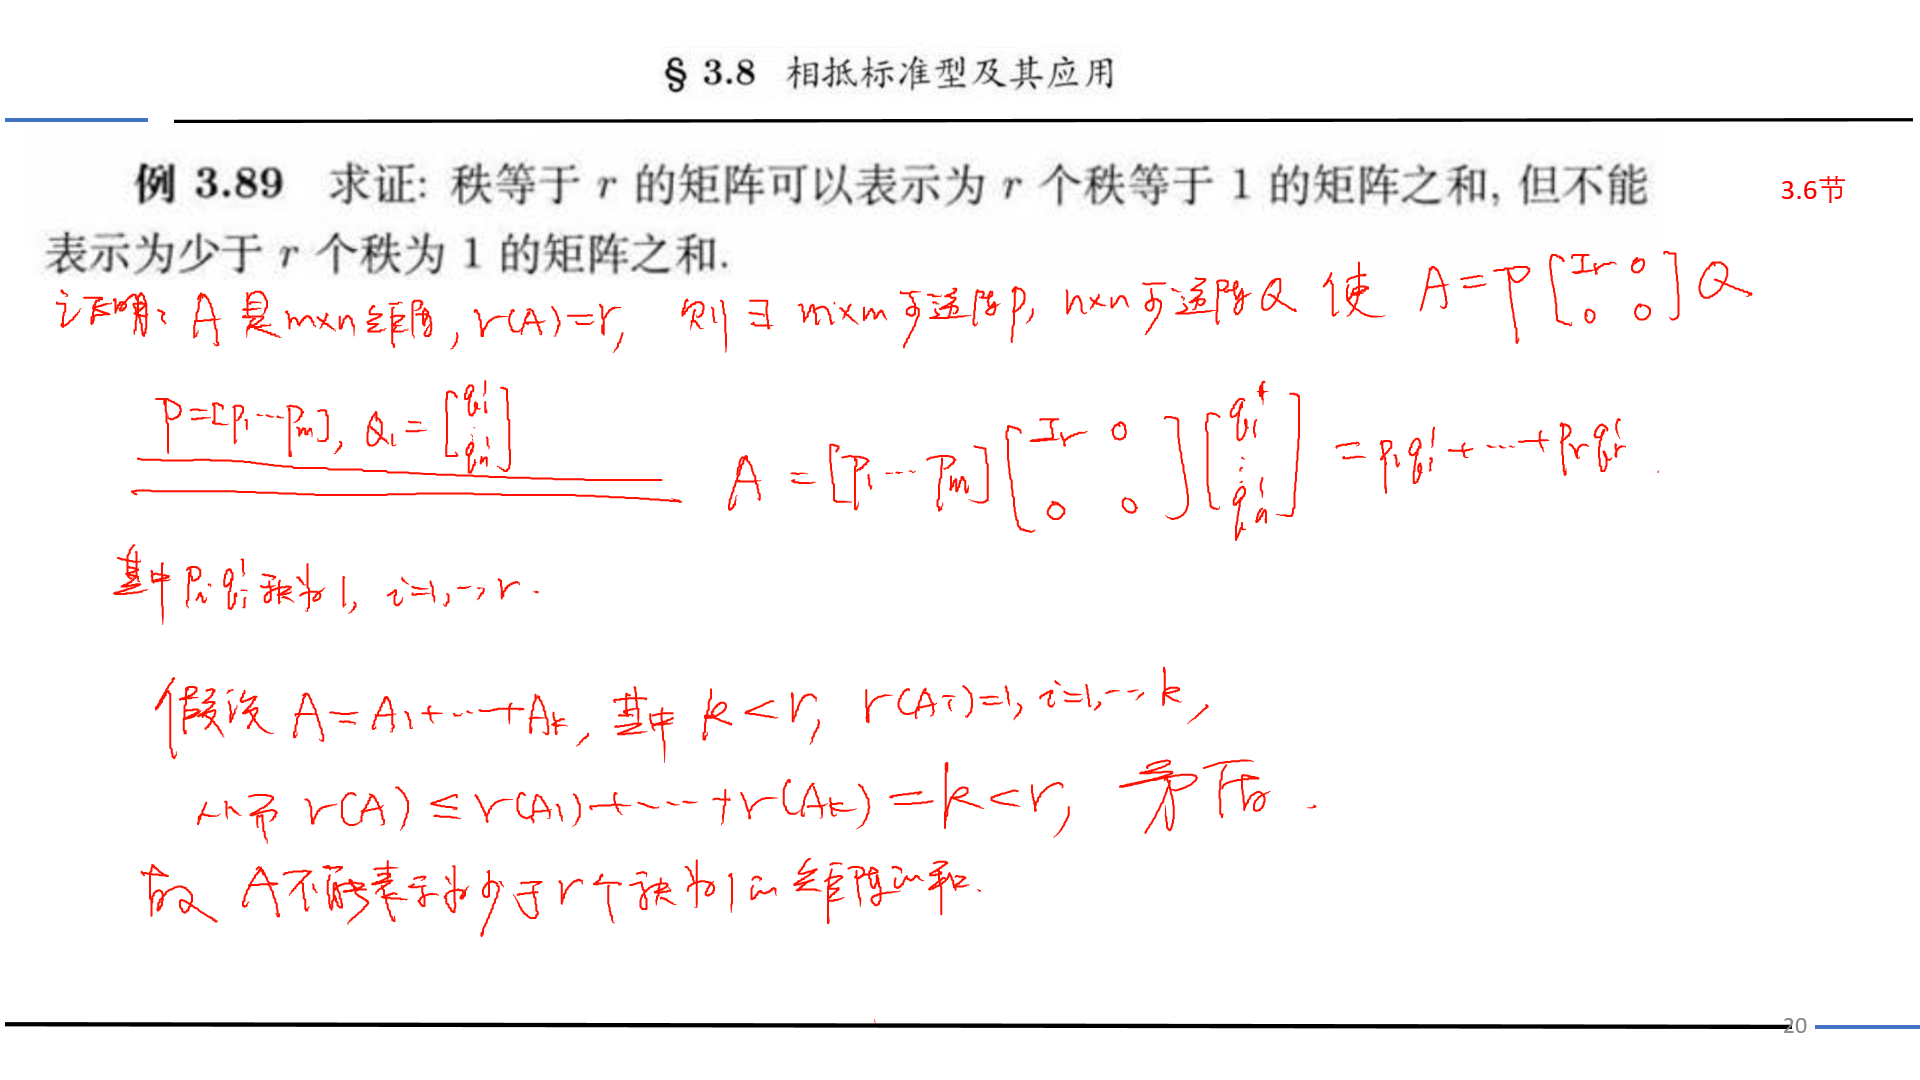 § 3.8 相抵标准型及其应用
例 3.89 求证: 秩等于 r 的矩阵可以表示为 r 个秩等于 1 的矩阵之和, 但不能
3.6节
表示为少于 r 个秩为 1 的矩阵之和.
证明: A 是 m×n 矩阵, r(A)=r, 则 ∃ m×m 可逆阵 P, n×n 可逆阵 Q 使 A=P[Ir 0; 0 0]Q
P=[p₁ ⋯ pₘ], Q₁=[q₁' ⋮ qₙ']
A = [p₁ ⋯ pₘ][Ir 0; 0 0][q₁' ⋮ qₙ'] = p₁q₁' + ⋯ + pᵣqᵣ'.
其中 pᵢqᵢ' 秩为 1, i=1,⋯,r.
假设 A=A₁+⋯+Aₖ, 其中 k<r, r(Aᵢ)=1, i=1,⋯,k,
从而 r(A) ≤ r(A₁)+⋯+r(Aₖ) = k<r, 矛盾.
故 A 不能表示为少于 r 个秩为 1 的矩阵的和.
20